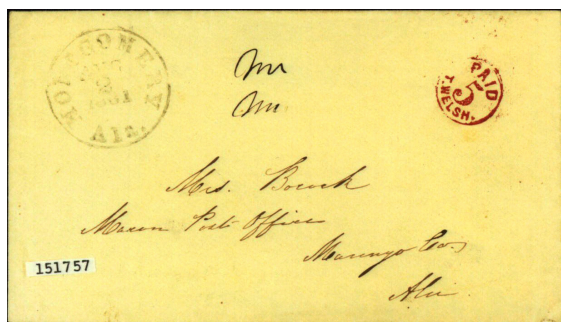 MONTGOMERY
AUG
2
1861
Ala.
PAID
5
T. WELSH.
Mr
Mr.
Mrs.
Macon Post Office
Marengo Co.
Ala.
151757